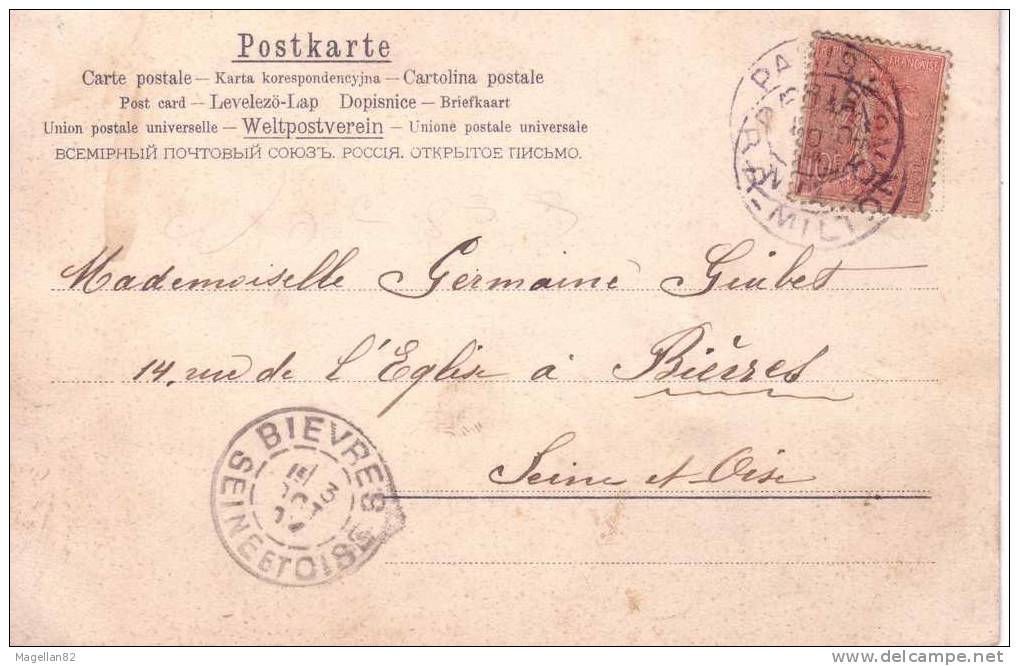 Postkarte
Carte postale — Karta korespondencyjna — Cartolina postale
Post card — Levelezö-Lap Dopisnice — Briefkaart
Union postale universelle — Weltpostverein — Unione postale universale
ВСЕМІРНЫЙ ПОЧТОВЫЙ СОЮЗЪ. РОССІЯ. ОТКРЫТОЕ ПИСЬМО.
PARIS
FRANÇAISE
Mademoiselle Germaine Giubet
14, rue de l'Eglise à Bièvres
Seine et Oise
BIEVRES
SEINE ET OISE
Magellan82
www.delcampe.net